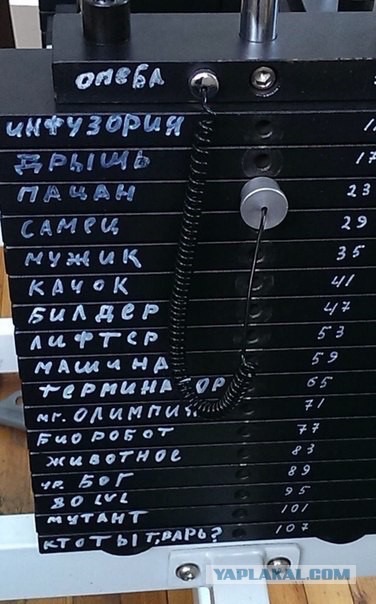 ОМЕБА
ИНФУЗОРИЯ
ДРЫЩЬ 17
ПАЦАН 23
САМЕЦ 29
МУЖИК 35
КАЧОК 41
БИЛДЕР 47
ЛИФТЕР 53
МАШИНА 59
ТЕРМИНАТОР 65
мг. ОЛИМПИЯ 71
БИОРОБОТ 77
ЖИВОТНОЕ 83
ур. БОГ 89
80 LVL 95
МУТАНТ 101
КТО ТЫ Т,ВАРЬ? 107
YAPLAKAL.COM